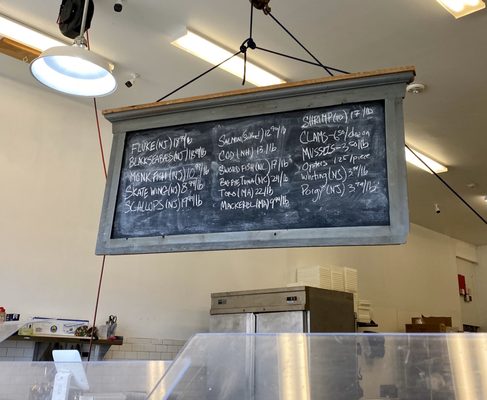 FLUKE (NJ) 18⁹⁹/lb
BLACK SEABASS (NJ) 15⁹⁹/lb
MONKFISH (NJ) 12⁹⁹/lb
SKATE WING (NJ) 8⁹⁹/lb
SCALLOPS (NJ) 19⁹⁹/lb
SALMON 12⁹⁹/lb
COD (NH) 13/lb
SWORDFISH (NC) 17/lb
(NC) 24/lb
TORO (NA) 22/lb
MACKEREL (MA) 9⁹⁹/lb
SHRIMP 17/lb
CLAMS
MUSSELS 3⁵⁰/lb
Oysters 1.25/piece
Whiting (NJ) 3⁹⁹/lb
Porgy (NJ) 3⁹⁹/lb